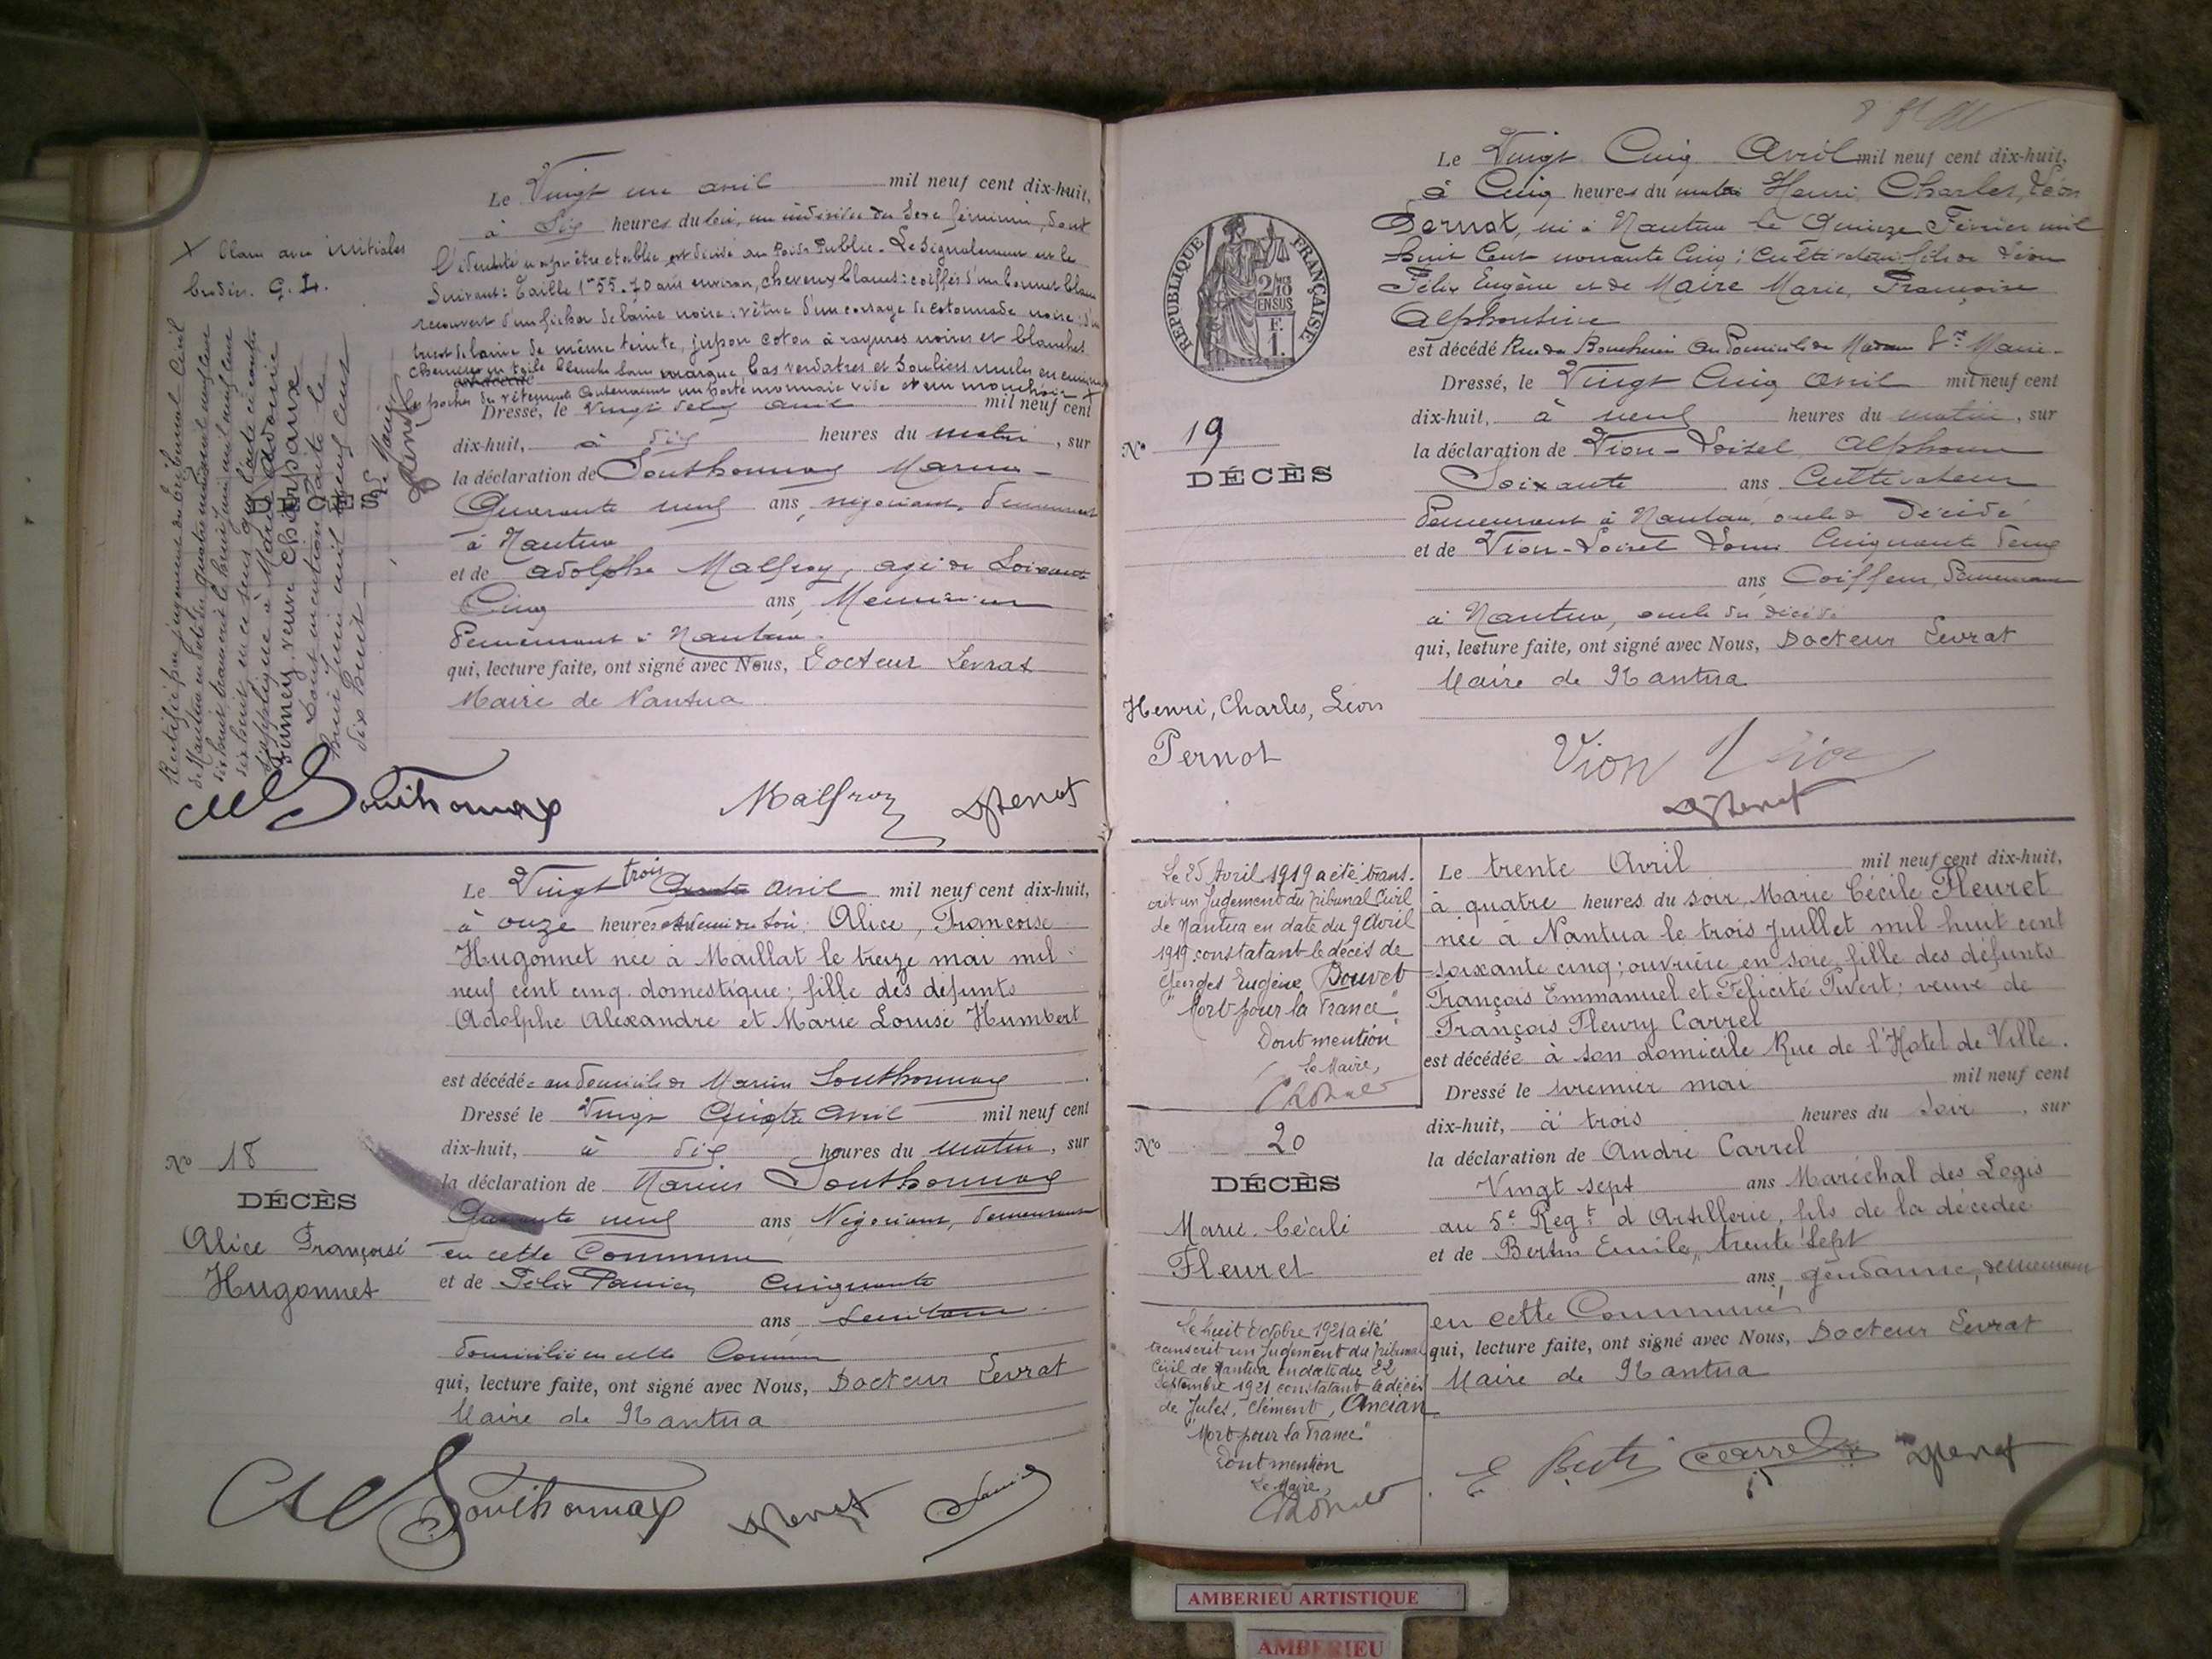 Le Vingt un avril mil neuf cent dix-huit,
à Six heures du soir, un individu du Sexe féminin, dont
l'identité n'a pu être établie est décédé au Poids Public. Le Signalement est le
Suivant: Taille 1m55. 70 ans environ, cheveux blancs: coiffés d'un bonnet blanc
recouvert d'un fichu de laine noire: vêtue d'un corsage de cotonnade noire: d'un
tricot de laine de même teinte, jupon coton à rayures noires et blanches
chemise en toile blanche sans marque, bas verdatres et Souliers
poches du vêtement contenaient un porte monnaie vide et un mouchoir X
X blanc avec initiales
brodées. G. L.
Rectifié par jugement du tribunal Civil
de Nantua en date du quatre
dix huit, transcrit le huit juin mil neuf cent
dix huit, en ce sens que l'acte ci contre
s'applique à Marie
veuve
Dont mention faite le
huit Juin mil neuf cent
dix huit
Le Maire
DÉCÈS
Dressé, le Vingt deux avril mil neuf cent
dix-huit, à dix heures du matin, sur
la déclaration de Southonnax Marius
Quarante neuf ans, négociant, demeurant
à Nantua
et de Adolphe Malfroy, agé de Soixante
Cinq ans, Menuisier
demeurant à Nantua.
qui, lecture faite, ont signé avec Nous, Docteur Levrat
Maire de Nantua
M Southonnax Malfroy
Le Vingt trois avril mil neuf cent dix-huit,
à onze heures du soir, Alice, Françoise
Hugonnet née à Maillat le treize mai mil
neuf cent cinq. domestique; fille des défunts
Adolphe Alexandre et Marie Louise Humbert
est décédée au domicile de Marius Southonnax
Dressé le Vingt Quatre avril mil neuf cent
dix-huit, à dix heures du matin, sur
No 18
DÉCÈS
Alice Françoise
Hugonnet
la déclaration de Marius Southonnax
Quarante neuf ans, Négociant, demeurant
en cette Commune
et de Félix Cinquante
ans
domicilié en cette Commune
qui, lecture faite, ont signé avec Nous, Docteur Levrat
Maire de Nantua
M Southonnax
Le Vingt Cinq Avril mil neuf cent dix-huit,
à Cinq heures du matin Henri, Charles, Léon
Pernot, né à Nantua le Quinze Février mil
huit Cent nonante Cinq; Cultivateur fils de Léon
Félix Eugène et de Maire Marie, Françoise
Alphonsine
RÉPUBLIQUE FRANÇAISE
est décédé Rue du au Domicile de Madame Vve Maire
Dressé, le Vingt Cinq avril mil neuf cent
dix-huit, à neuf heures du matin, sur
No 19
DÉCÈS
la déclaration de Vion-Loisel Alphonse
Soixante ans Cultivateur
demeurant à Nantua, oncle du Décédé
et de Vion-Loisel Louis Cinquante deux
ans, Coiffeur, demeurant
à Nantua, oncle du décédé
qui, lecture faite, ont signé avec Nous, Docteur Levrat
Maire de Nantua
Henri, Charles, Léon
Pernot
Vion
Le 25 Avril 1919 a été trans-
crit un Jugement du Tribunal Civil
de Nantua en date du 9 Avril
1919 constatant le décès de
Georges Eugène Bouvet
"Mort pour la France"
Dont mention
Le Maire,
Le trente Avril mil neuf cent dix-huit,
à quatre heures du soir, Marie Cécile Fleuret
née à Nantua le trois Juillet mil huit cent
soixante cinq; ouvrière en soie, fille des défunts
François Emmanuel et Félicité Pivert; veuve de
François Fleury Carrel
est décédée à son domicile Rue de l'Hotel de Ville.
Dressé le premier mai mil neuf cent
dix-huit, à trois heures du Soir, sur
No 20
DÉCÈS
Marie. Cécile
Fleuret
la déclaration de André Carrel
Vingt sept ans Maréchal des Logis
au 5e Regt d'Artillerie, fils de la décédée
et de Bertin Emile, trente Sept
ans, gendarme, demeurant
en cette Commune
qui, lecture faite, ont signé avec Nous, Docteur Levrat
Maire de Nantua
Le huit Octobre 1921 a été
transcrit un Jugement du Tribunal
Civil de Nantua en date du 22
Septembre 1921 constatant le décès
de Jules, Clément, Ancian
"Mort pour la France"
Dont mention
Le Maire,
E Carrel
AMBERIEU ARTISTIQUE
AMBERIEU